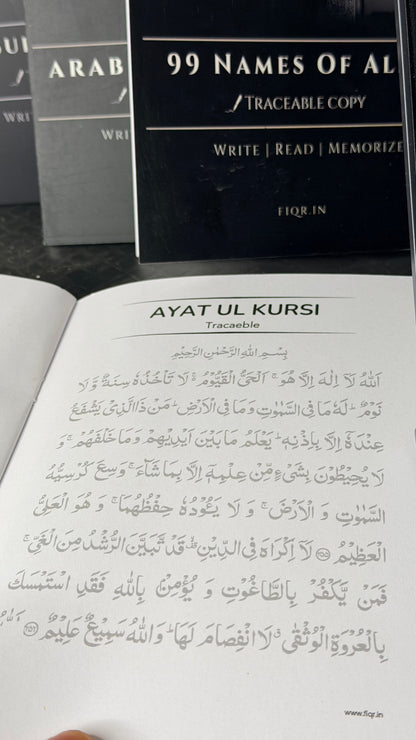 ARAB
WRI
WRI
99 NAMES OF AL
TRACEABLE COPY
WRITE | READ | MEMORIZE
FIQR.IN
AYAT UL KURSI
Tracaeble
بِسْمِ اللهِ الرَّحْمٰنِ الرَّحِيْمِ
اَللهُ لَآ اِلٰهَ اِلَّا هُوَ ۚ اَلْحَىُّ الْقَيُّوْمُ ۚ لَا تَأْخُذُهٗ سِنَةٌ وَّ لَا
نَوْمٌ ؕ لَهٗ مَا فِى السَّمٰوٰتِ وَ مَا فِى الْاَرْضِ ؕ مَنْ ذَا الَّذِىْ يَشْفَعُ
عِنْدَهٗٓ اِلَّا بِاِذْنِهٖ ؕ يَعْلَمُ مَا بَيْنَ اَيْدِيْهِمْ وَمَا خَلْفَهُمْ ۚ وَ
لَا يُحِيْطُوْنَ بِشَىْءٍ مِّنْ عِلْمِهٖٓ اِلَّا بِمَا شَآءَ ۚ وَسِعَ كُرْسِيُّهُ
السَّمٰوٰتِ وَ الْاَرْضَ ۚ وَ لَا يَئُوْدُهٗ حِفْظُهُمَا ۚ وَ هُوَ الْعَلِىُّ
الْعَظِيْمُ ﴿۲۵۵﴾ لَآ اِكْرَاهَ فِى الدِّيْنِ ۙ قَدْ تَّبَيَّنَ الرُّشْدُ مِنَ الْغَىِّ ۚ
فَمَنْ يَّكْفُرْ بِالطَّاغُوْتِ وَ يُؤْمِنْۢ بِاللهِ فَقَدِ اسْتَمْسَكَ
بِالْعُرْوَةِ الْوُثْقٰى ۗ لَا انْفِصَامَ لَهَا ؕ وَاللهُ سَمِيْعٌ عَلِيْمٌ ﴿۲۵۶﴾
www.fiqr.in